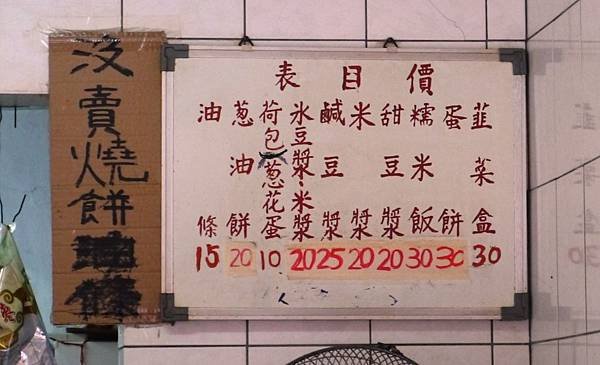 價目表
韭菜盒 30
蛋餅 30
糯米飯 30
甜豆漿 20
米漿 20
鹹豆漿 25
氷豆漿、米漿 20
荷包葱花蛋 10
葱油餅 20
油條 15
沒賣燒餅